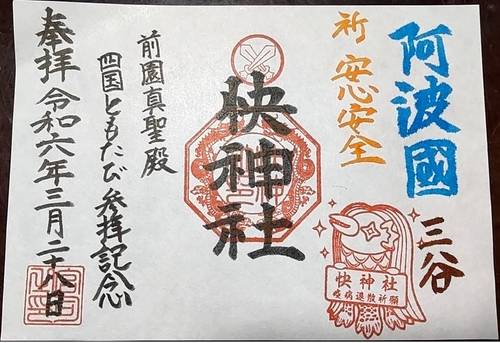 阿波國
三谷
祈 安心安全
快神社
快神社
疫病退散祈願
前園真聖殿
四国ともたび参拝記念
奉拝 令和六年三月二十八日